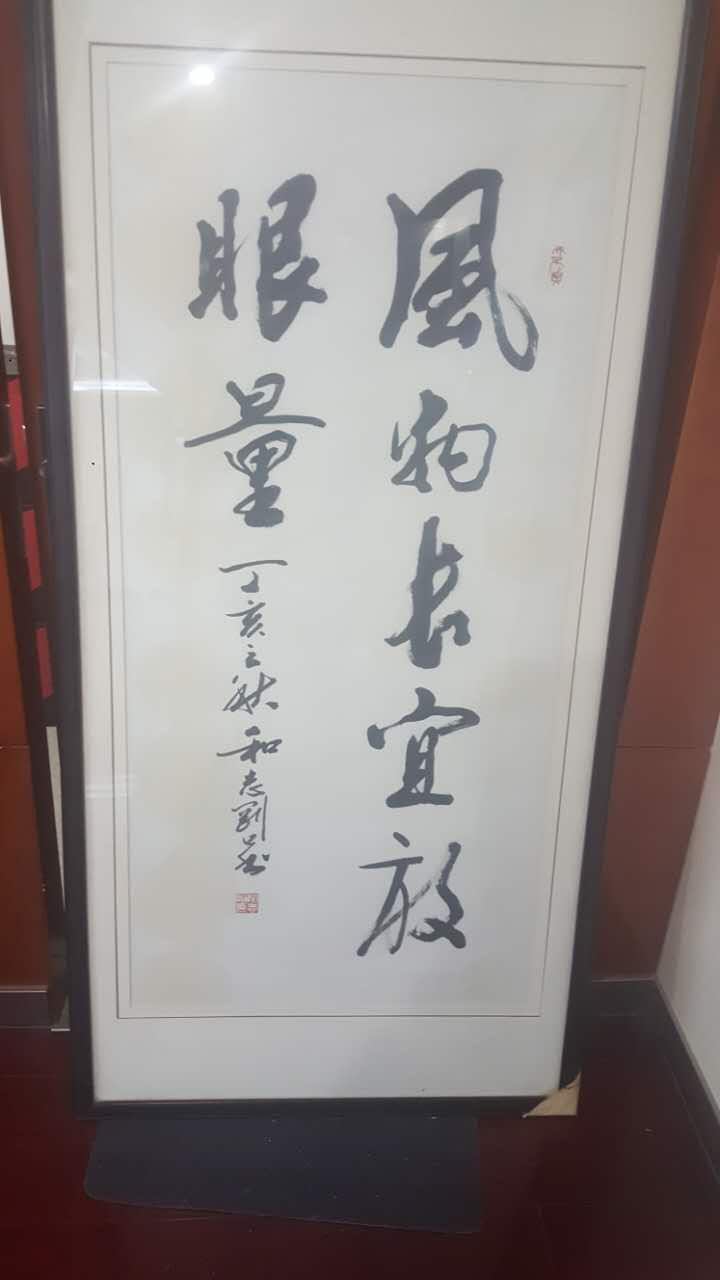 風物長宜放
眼量
丁亥之秋和志劉